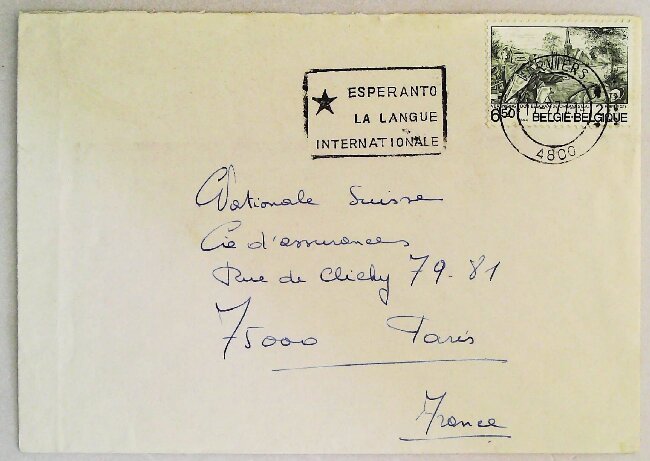 ESPERANTO
LA LANGUE
INTERNATIONALE
6,50
BELGIE-BELGIQUE
4800
Nationale Suisse
Cie d'assurances
Rue de Clichy 79-81
75000 Paris
France